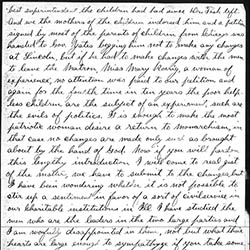 best superintendent the children had had since Mrs. Fish left.
And we the mothers of the children indorsed him and a petition
signed by most of the parents of children from Chicago was
handed to Gov. Yates begging him not to make any changes
at Lincoln, but if he had to make changes wait the move
to leave the Matron, Miss Mary being, a woman of
experience, no attention was paid to our petition and
again for the fourth time in ten years the poor help-
less children are the subject of an experiment, such are
the evils of politics. It is enough to make the most
patriotic woman desire a return to monarchism, in
that case no changes are made only such as brought
about by the hand of God. Now if you will pardon
this lengthy introduction, I will come to real gist
of the matter, we have to submit to the changes but
I have been wondering whether it is not possible to
stir up a sentiment in favor of a sort of civil service in
our charitable institutions in Ill. I have studied the
men who are the leaders in the two large parties and
I am woefully disappointed in them, not but what their
hearts are large enough to sympathize if you take